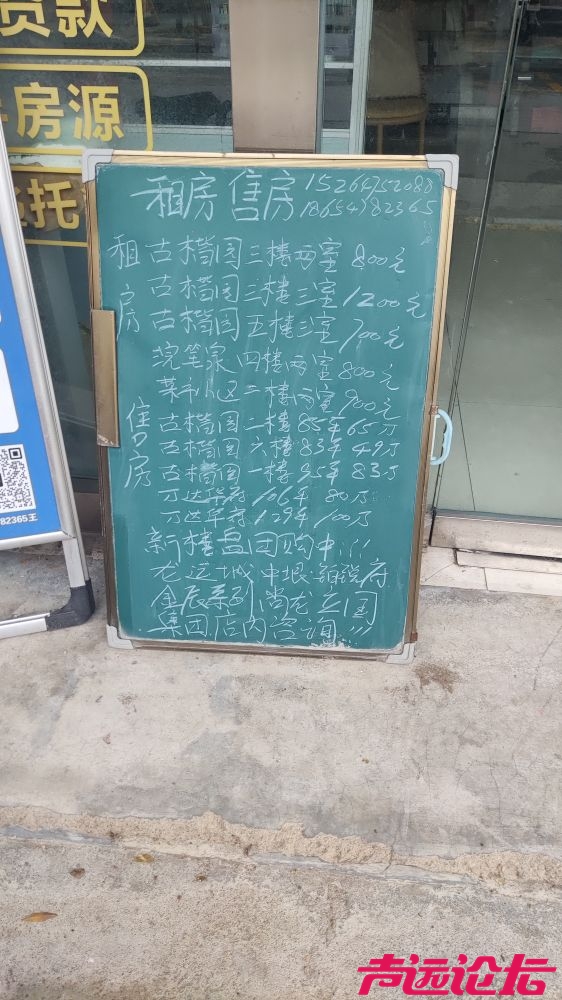 贷款
房源
托
租房售房 15264752088
18654782365
租 古楷园三楼两室800元
古楷园三楼三室1200元
房 古楷园五楼三室700元
浣笔泉四楼两室800元
菜市小区二楼两室900元
售 古楷园二楼85平65万
古楷园六楼83平49万
房 古楷园一楼95平83万
万达华府106平80万
万达华府129平100万
新楼盘团购中!!!
龙运城 中垠铂悦府
金辰系列 尚龙立国
集团店内咨询!!!
82365王
声远论坛